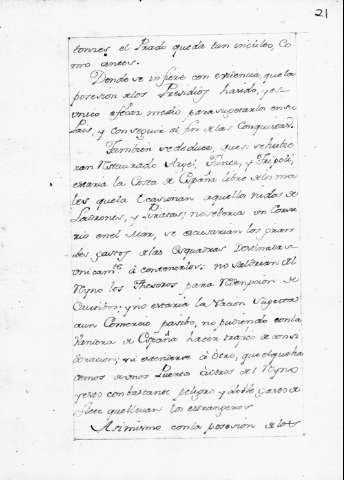 21
tonces el Prado queda tan inculto, Co
mo antes.
Donde se infiere con experiencia, que la
posesion de los Presidios ha sido, y es
unico eficaz medio para sugetarlos en su
Pais, y conseguir el fin de las Conquistas.
Tambien se deduce, que si se huvie
ran restaurado Argel, Tunez, y Tripoli,
estaria la Costa de España libre de los ma
les que la Ocasionan aquellos nidos de
Ladrones, y Piratas; no setoria un Corsa
rio en el Mar, se escusarian los gran
des gastos de las Esquadras Destinadas
unicamte. à contenerlos: no saldrian del
Reyno los Thesoros para Redempcion de
Cautibos: y no estaria la Nacion Sugeta
aun Comercio pasibo, no pudiendo con la
Vandera de España hacer trafico de consi
deracion; ni estenderse à otro, que el que ha
cemos de unos Puertos à otros del Reyno
y ese con bastante peligro, y doble gasto de
flete que llevan los estrangeros
Asimismo con la posesion de los